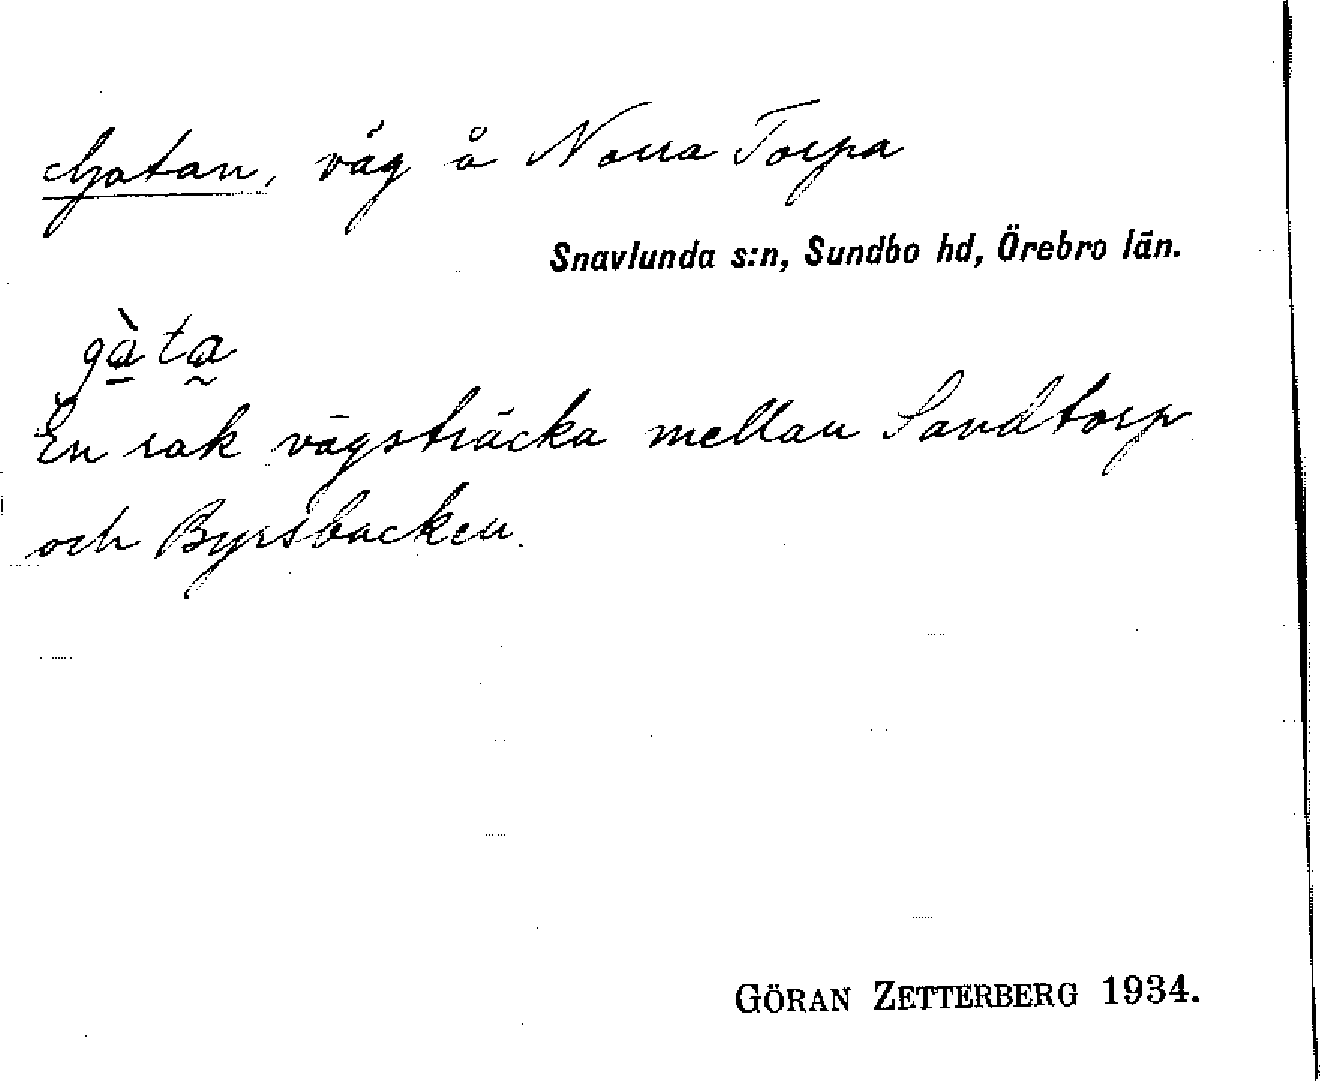 Gatan, väg å Norra Torpa
Snavlunda s:n, Sundbo hd, Örebro län.
gàta
En rak vägsträcka mellan Sandtorp
och Byrsbacken.
GÖRAN ZETTERBERG 1934.